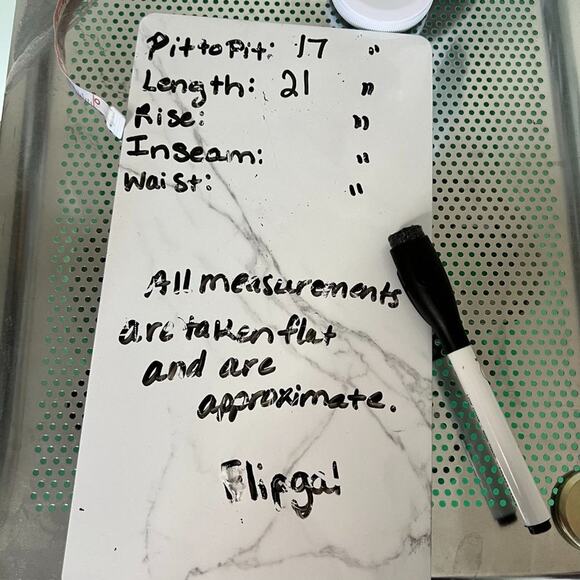 Pit to Pit: 17 "
Length: 21 "
Rise: "
Inseam: "
Waist: "
All measurements
are taken flat
and are
approximate.
Flipgal